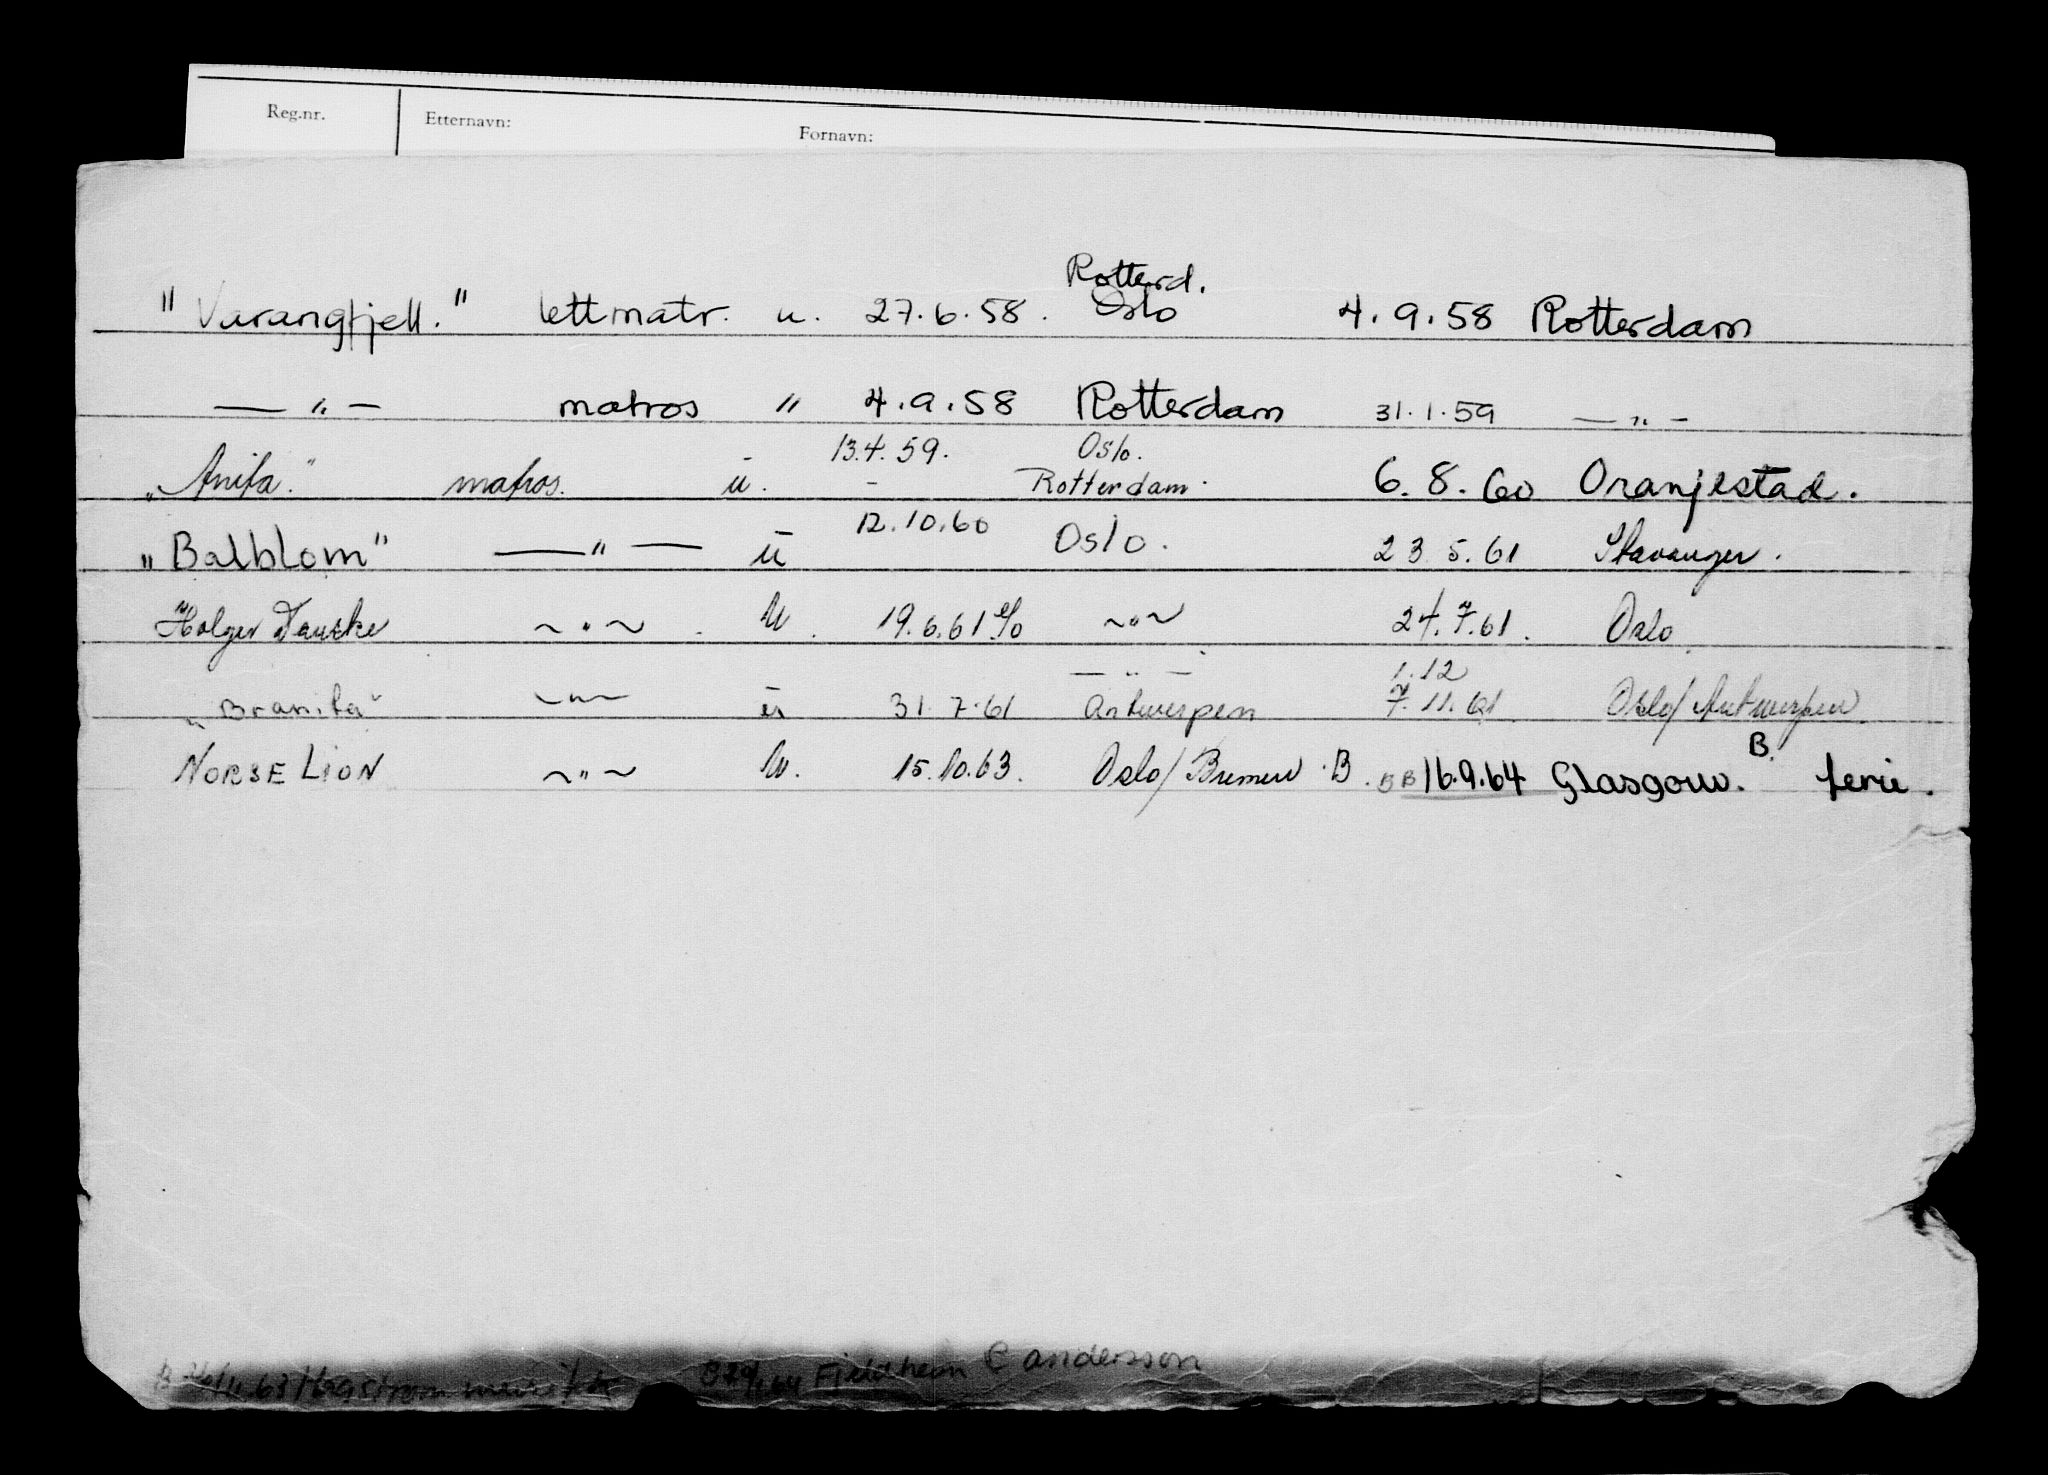 Reg.nr. Etternavn: Fornavn:
Rotterd.
"Varangfjell." lettmatr. u. 27.6.58. Oslo 4.9.58 Rotterdam
— " — matros " 4.9.58 Rotterdam 31.1.59 — " —
13.4.59. Oslo.
"Anita." matros. u. - Rotterdam. 6.8.60 Oranjestad.
12.10.60
"Balblom" — " — u Oslo. 23.5.61 Stavanger.
Holger Danske ~ " ~ . U. 19.6.61 ~ " ~ 24.7.61. Oslo
— " — 1.12
"Branita" ~ " ~ u 31.7.61 Antwerpen 7.11.61. Oslo/Antwerpen
B.
NORSE LION ~ " ~ U. 15.10.63. Oslo/Bremen B. BB 16.9.64 Glasgow. ferie.
Fjeldheim C anderson